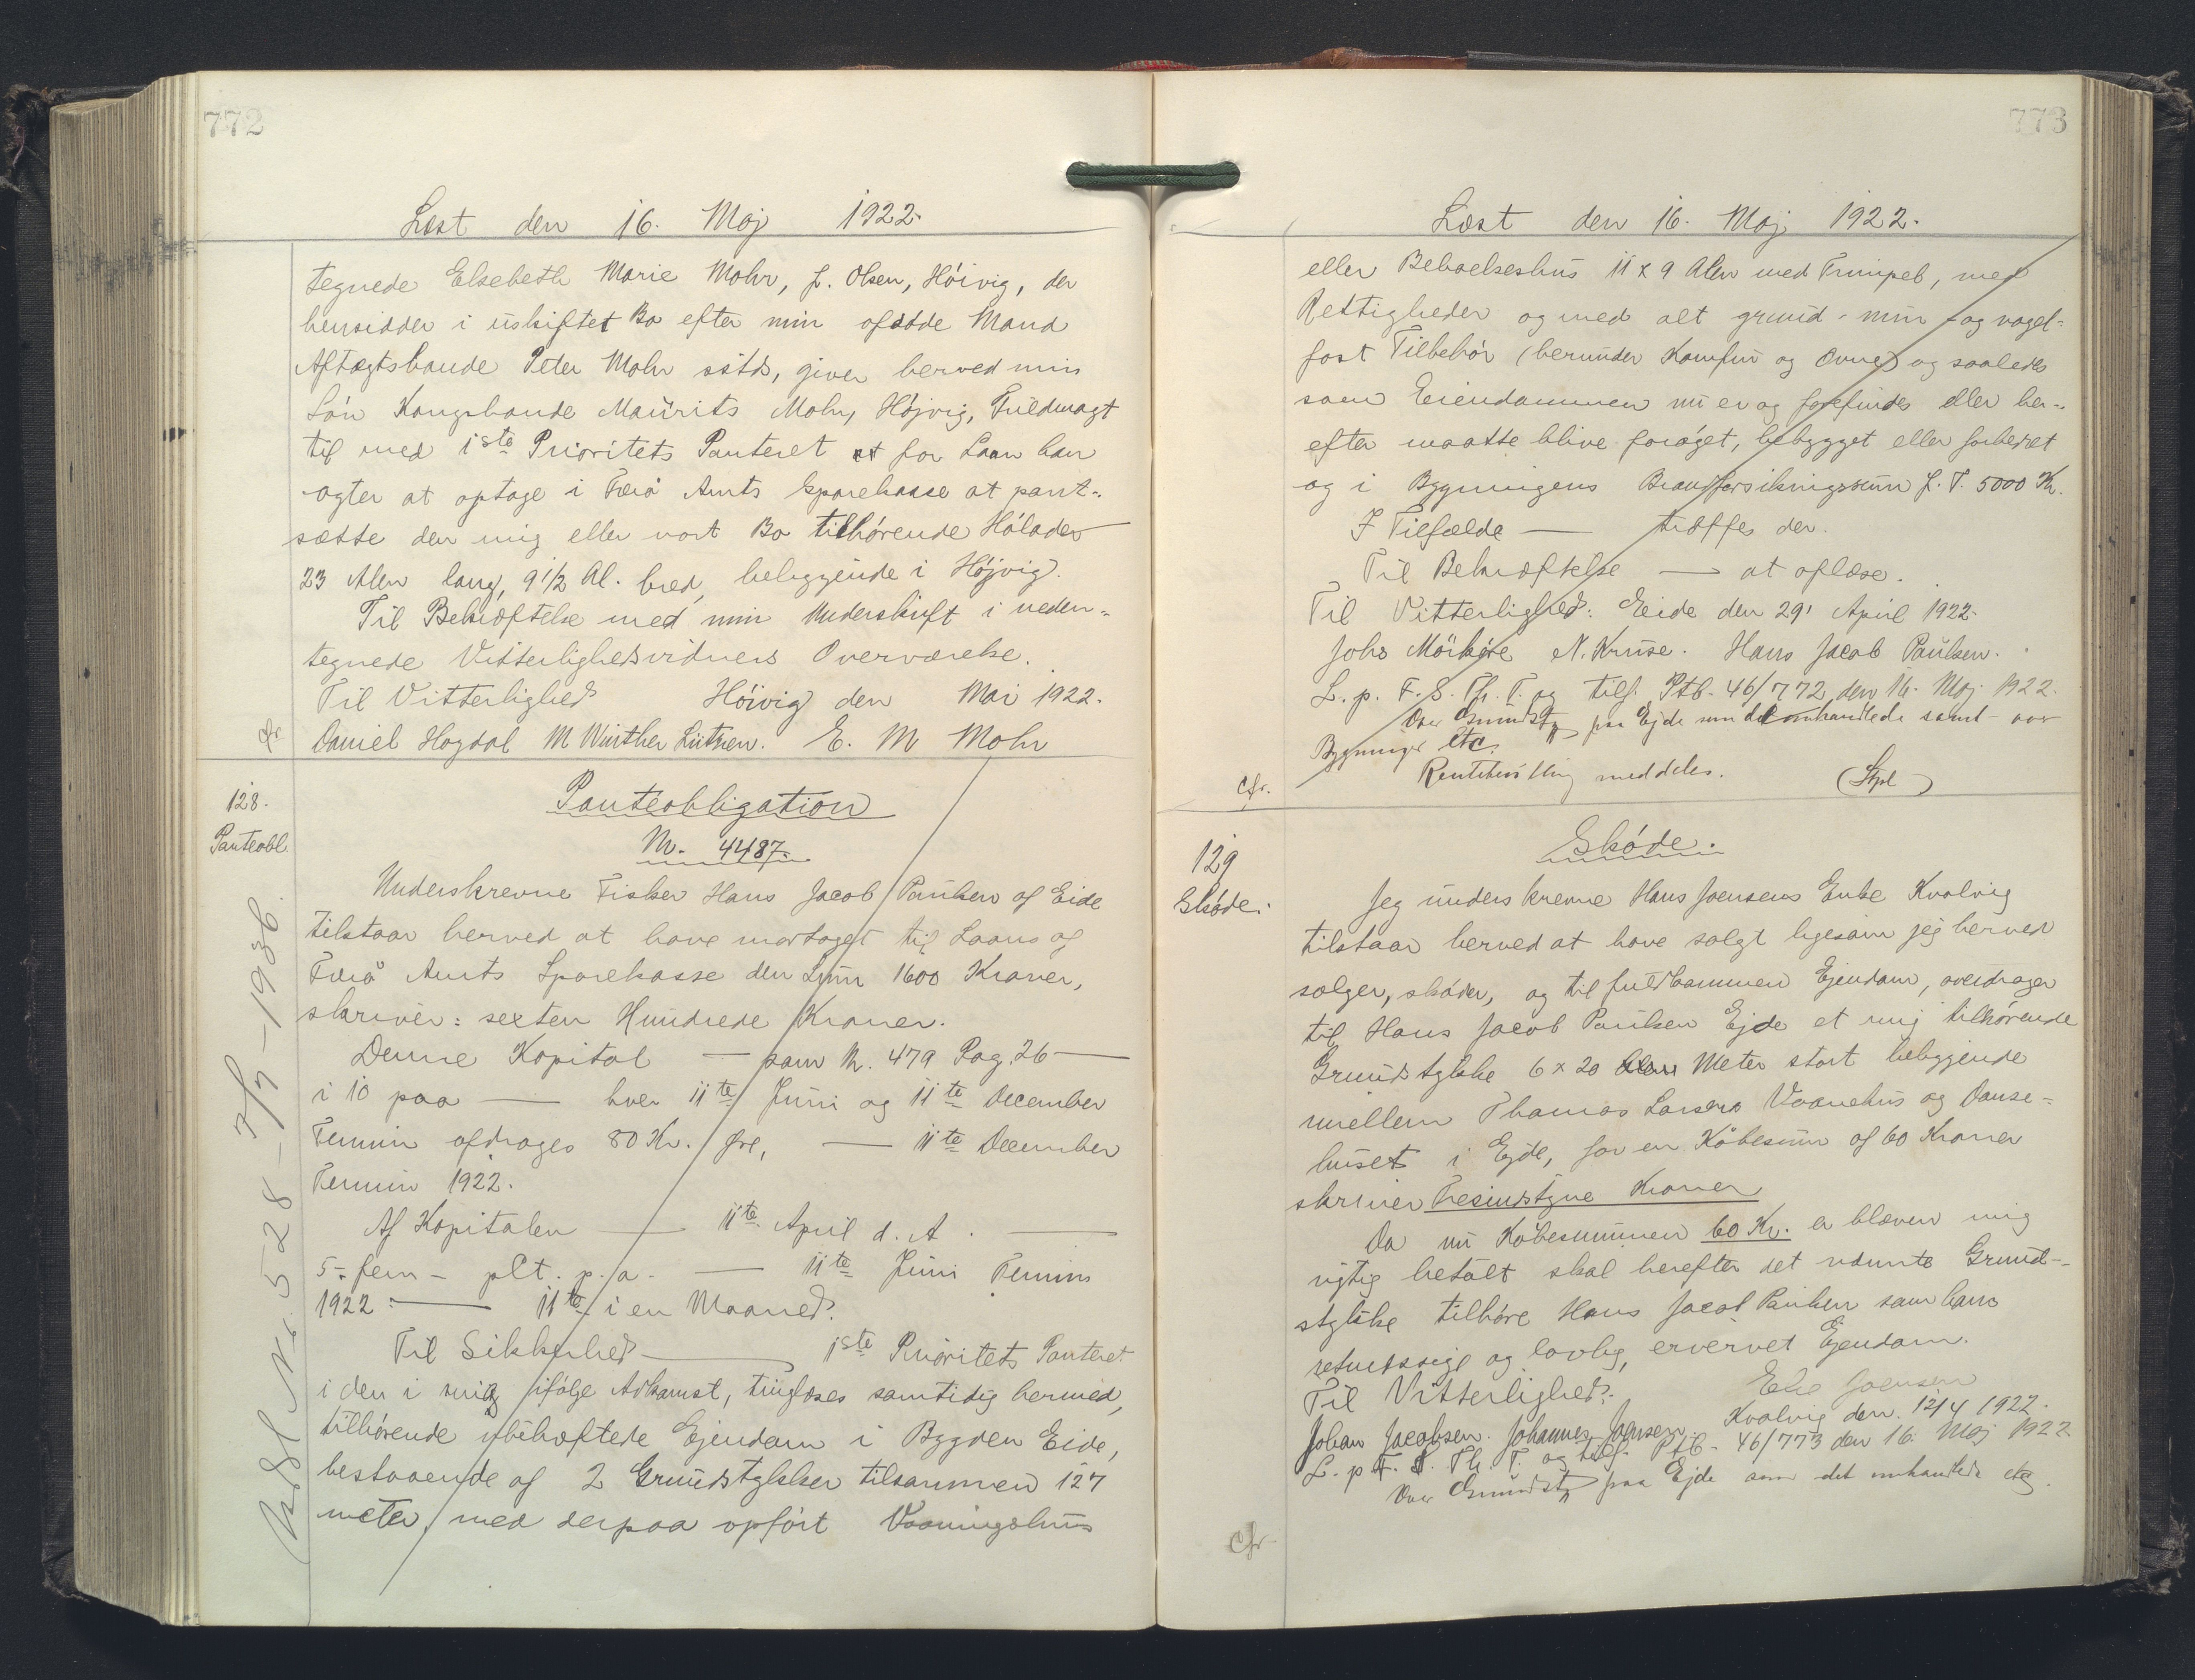 772
Læst den 16. Maj 1922.
tegnede Elsebeth Marie Mohr, f. Olsen, Höivig, der
hensidder i uskiftet Bo efter min afdöde Mand
Aftægtsbonde Peter Mohr sstds, giver herved min
Sön Kongsbonde Maurits Mohr, Höjvig, Fuldmagt
til med 1ste Prioritets Panteret for Laan han
agter at optage i Færö Amts Sparekasse at pant-
sætte den mig eller vort Bo tilhörende Hölade
23 Alen lang, 9 1/2 Al. bred, beliggende i Höjvig.
Til Bekræftelse med min Underskrift i neden-
tegnede Vitterlighedsvidners Overværelse.
Til Vitterlighed Höivig den Mai 1922.
Daniel Hogdal M Winther Lützen. E. M Mohr
cfr.
128.
Panteobl.
Panteobligation
Nr. 4487.
Underskrevne Fisker Hans Jacob Paulsen af Eide
tilstaar herved at have modtaget til Laans af
Færö Amts Sparekasse den Sum 1600 Kroner,
skriver: sexten Hundrede Kroner.
Denne Kapital — som Nr. 479 Pag. 26 —
i 10 paa — hver 11te Juni og 11te December
Termin afdrages 80 Kr. fre, — 11te December
Termin 1922.
Af Kapitalen — 11te April d. A. —
5 - fem - pCt. p. a. — 11te Juni Termin
1922 — 11te i en Maaned.
Til Sikkerhed — 1ste Prioritets Panteret
i den i mig ifölge Adkomst, tinglæses samtidig hermed,
tilhörende ubehæftede Ejendom i Bygden Eide,
bestaaende af 2 Grundstykker tilsammen 127
meter, med derpaa opfört Vaaningshus
No. 528 - 7/7 - 1936.
773
Læst den 16. Maj 1922.
eller Beboelseshus 11 x 9 Alen med Trimpel, med
Rettigheder og med alt grund- mur- og nagel-
fast Tilbehör (herunder Komfur og Ovne) og saaledes
som Eiendommen nu er og forefindes eller her-
efter maatte blive foröget, bebygget eller forbedret
og i Bygningens Brandforsikringssum f. T. 5000 Kr.
I Tilfælde — træffes der.
Til Bekræftelse — at aflæse.
Til Vitterlighed: Eide den 29' April 1922.
Johs Mörköre N. Kruse. Hans Jacob Paulsen.
L. p. F. S. Th. T. og tilf. Ptb. 46/772 den 16. Maj 1922.
Over Grundst. paa Ejde som det omhandlede samt over
Bygninger etc.
meddeles. (Stpl)
cfr.
129
Sköde.
Sköde.
Jeg underskrevne Hans Joensens Enke Kvalvig
tilstaar herved at have solgt ligesom jeg herved
sælger, sköder, og til fuldkommen Ejendom, overdrager
til Hans Jacob Paulsen Ejde et mig tilhörende
Grundstykke 6 x 20 Meter stort beliggende
mellem Thomas Larsens Vaanehus og Danse-
huset i Ejde, for en Köbesum af 60 Kroner
skriver Tresindstyve Kroner
Da nu Köbesummen 60 Kr. er bleven mig
rigtig betalt skal herefter det nævnte Grund-
stykke tilhöre Hans Jacob Paulsen som hans
retmæssige og lovlig ervervet Ejendom.
Til Vitterlighed: Elsé Joensen
Johan Jacobsen. Johannes Joensen. Kvalvig den. 12/4 1922.
L. p. F. S. Th. T. og tilf. Ptb. 46/773 den 16. Maj 1922
Over Grundst. paa Ejde som det omhandlede etc.
cfr.